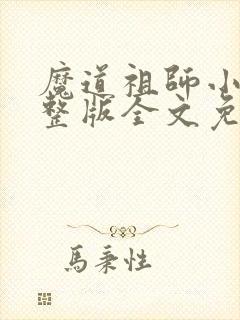 魔道祖師小
整版全文免
馬秉性